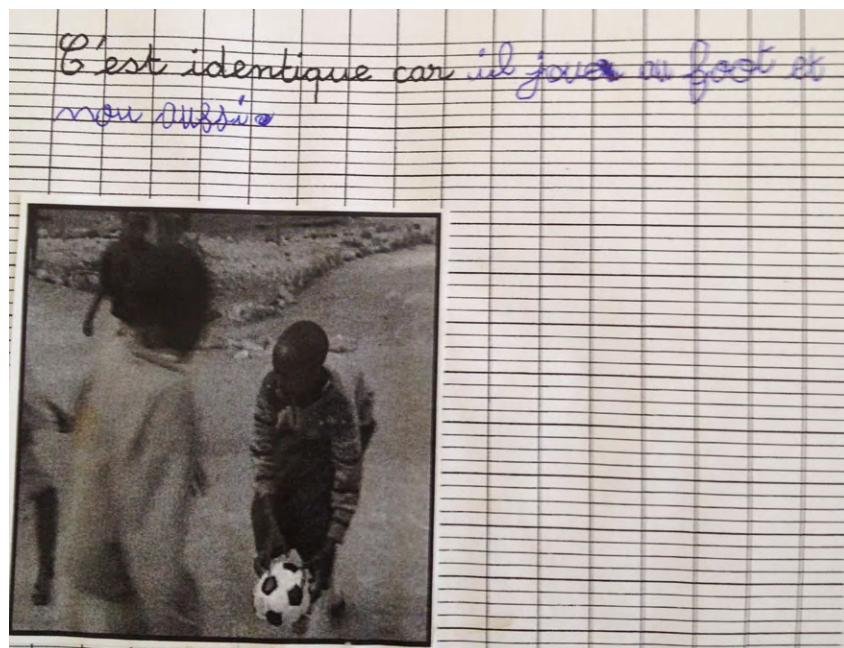 C'est identique car il joue au foot et
nou aussi.